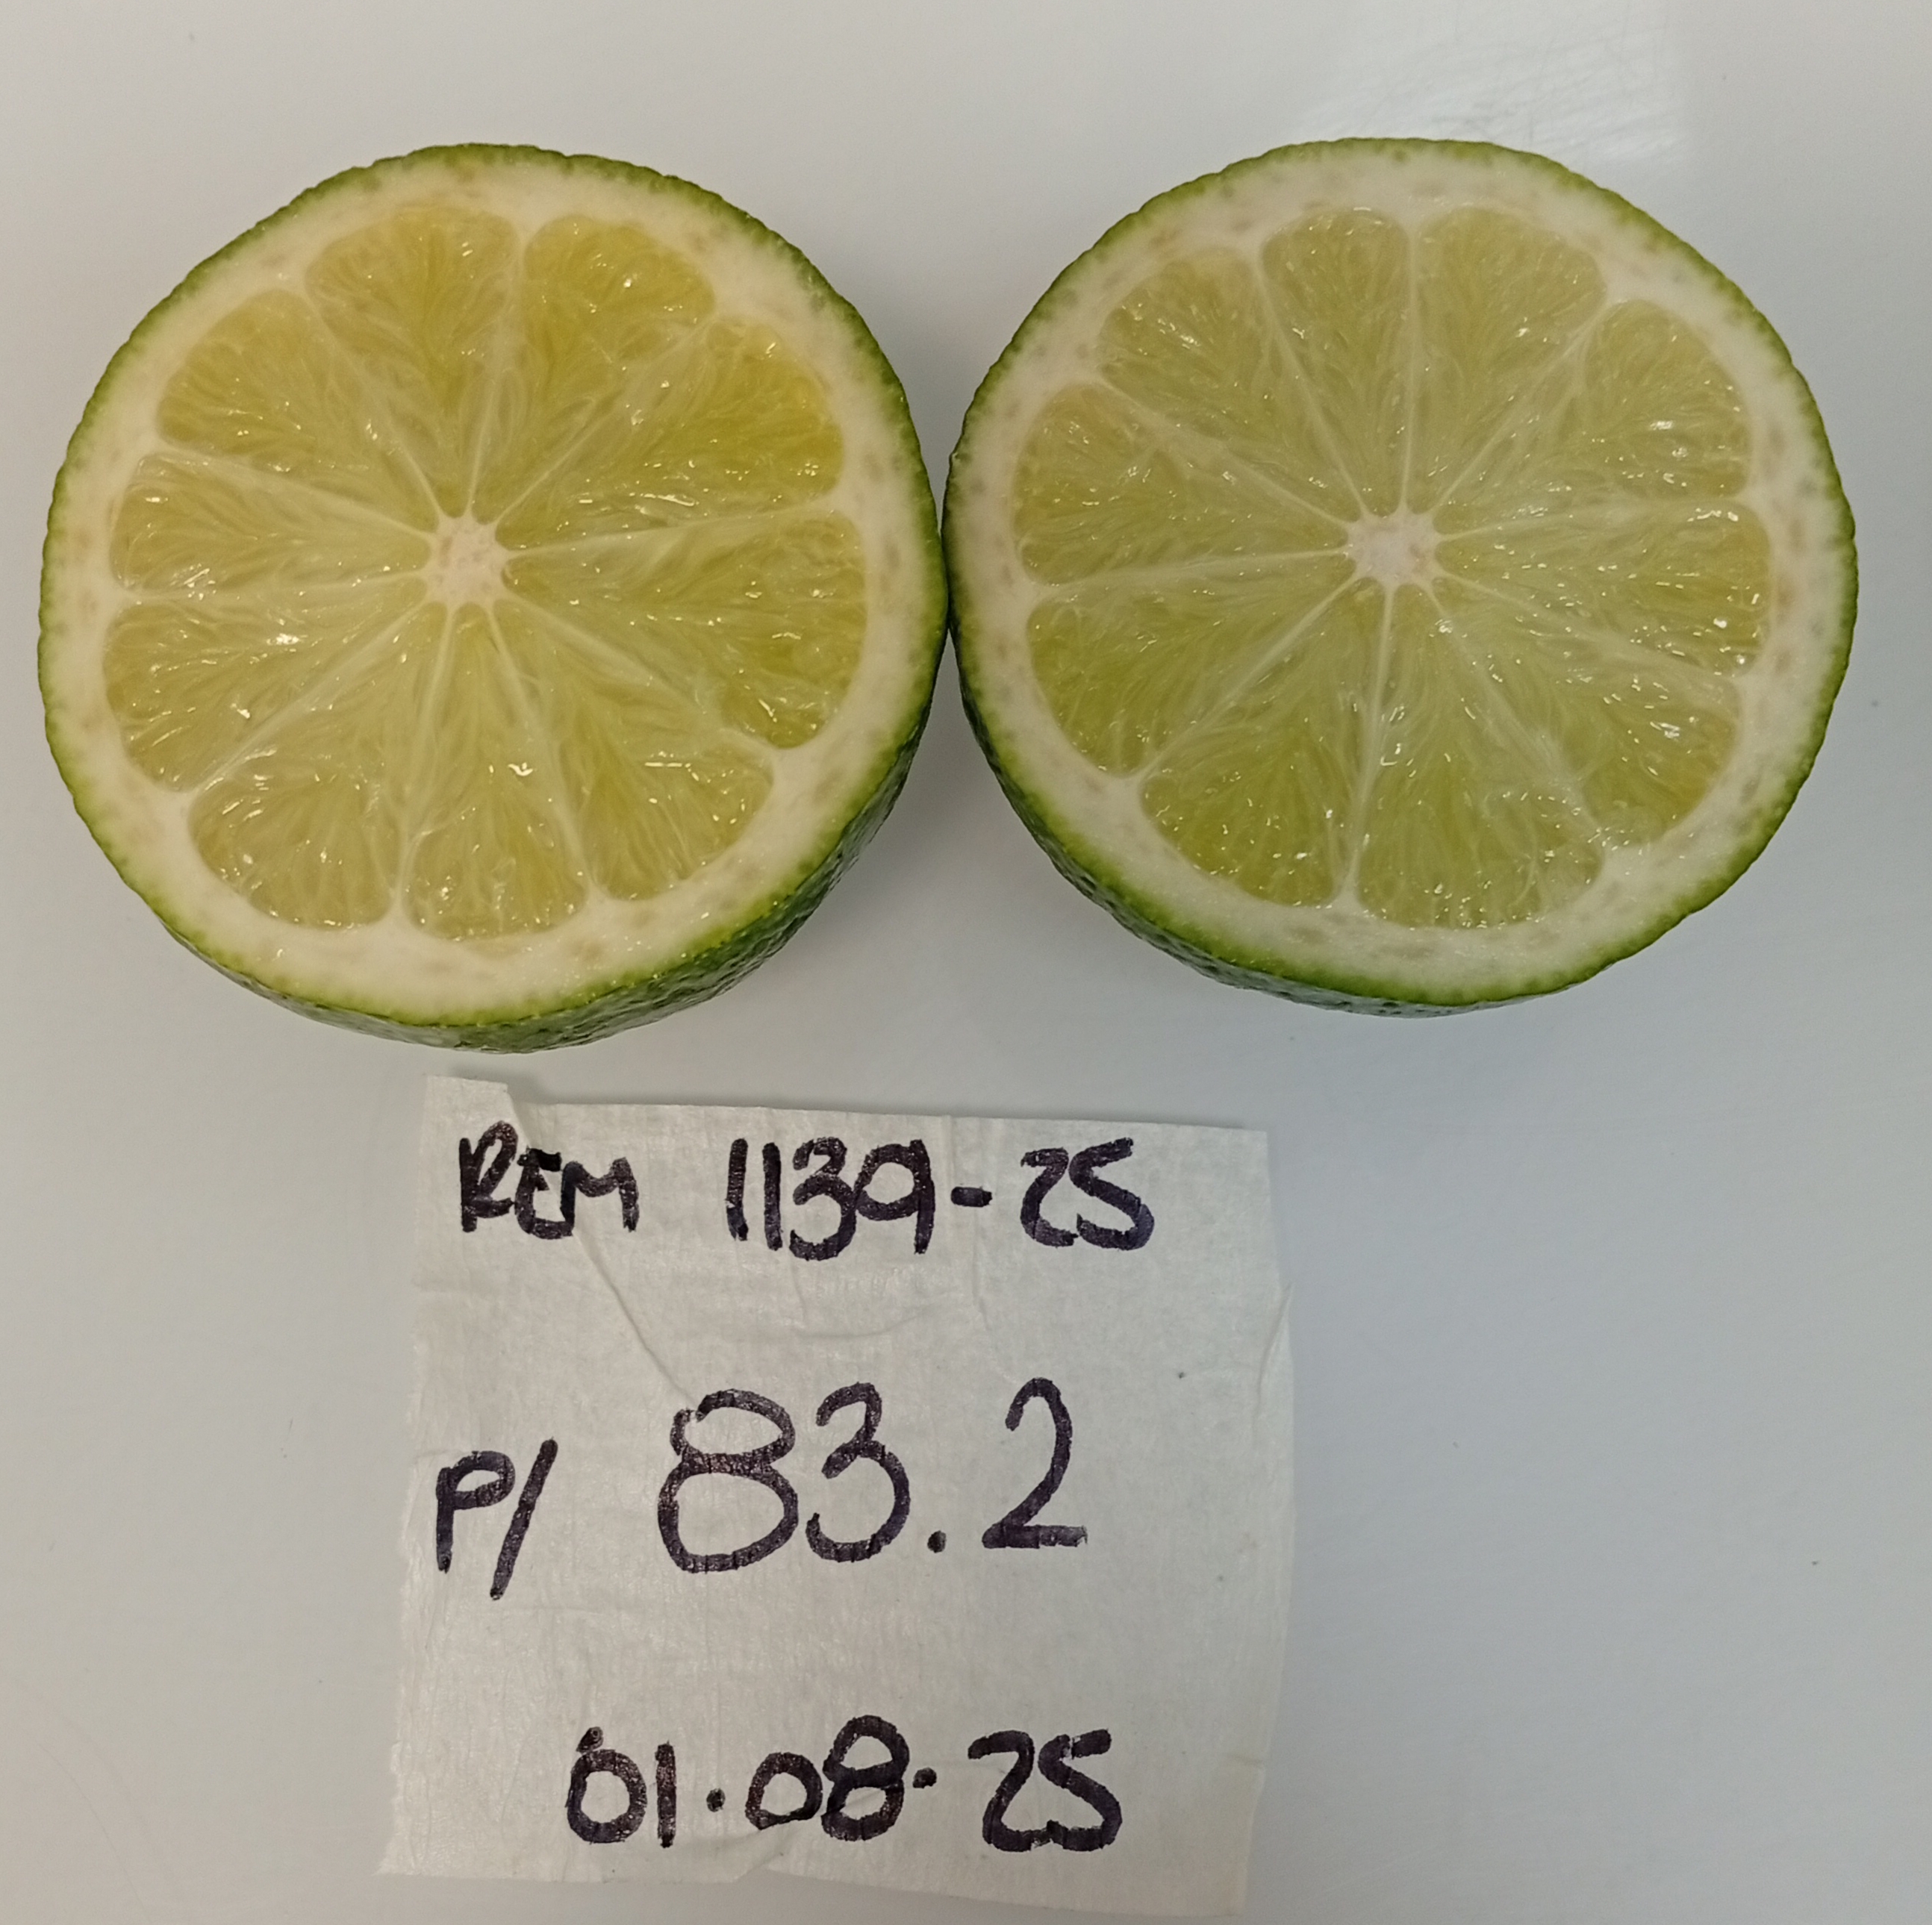 REM 1139-25
P/ 83.2
01.08.25